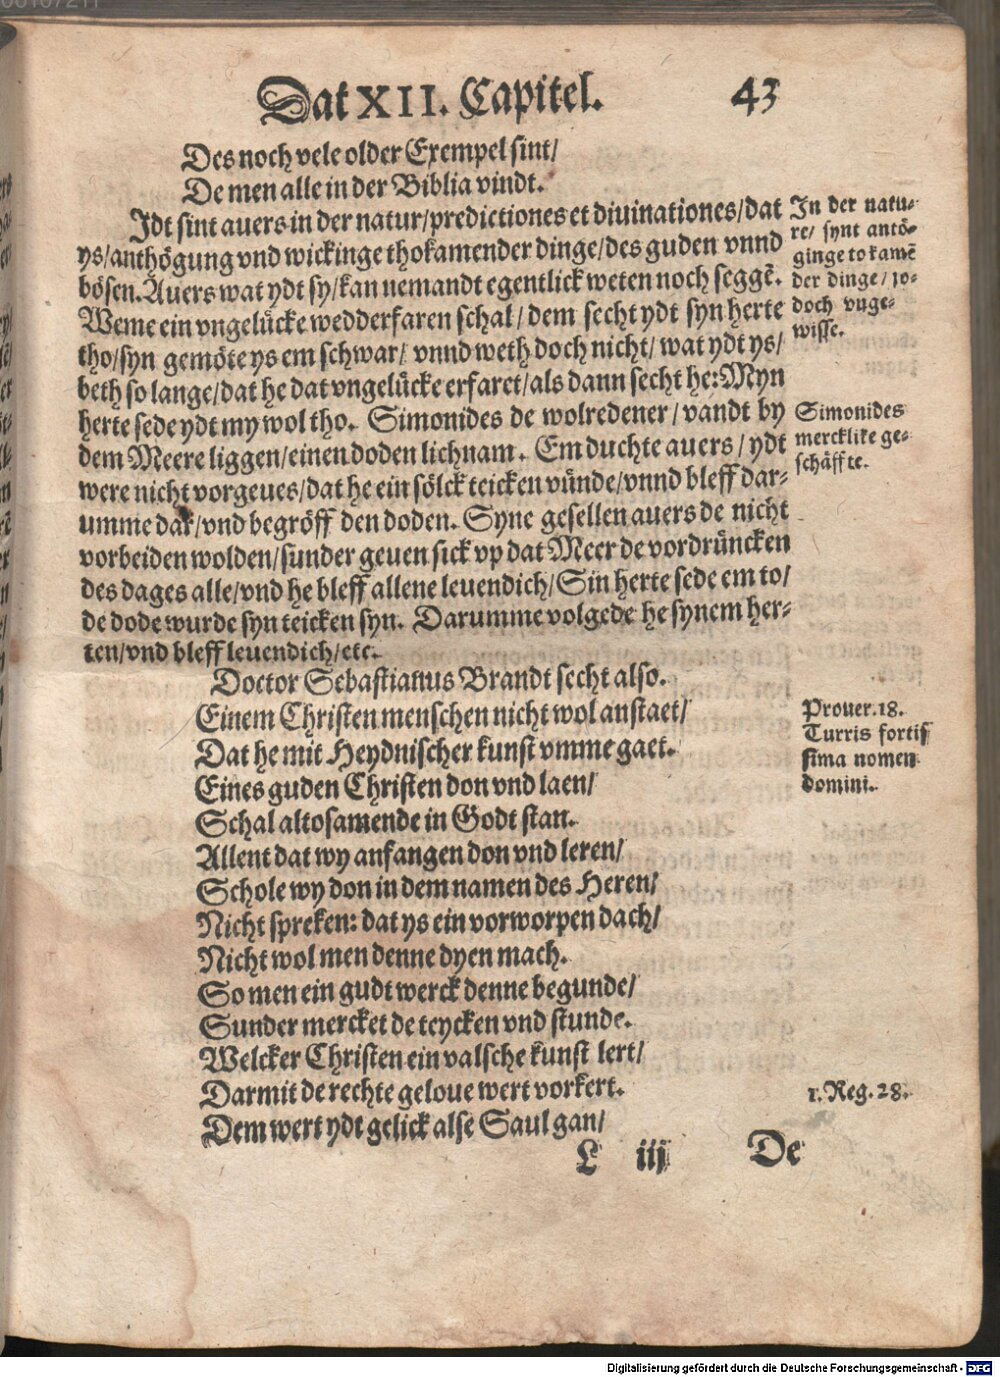 Dat XII. Capitel. 43
Des noch vele older Exempel sint/
De men alle in der Biblia vindt.
Idt sint auers in der natur/predictiones et diuinationes/dat
ys/anthögung vnd wickinge thokamender dinge/des guden vnnd
bösen.Auers wat ydt sy/kan nemandt egentlick weten noch seggē.
Weme ein vngelücke wedderfaren schal/dem secht ydt syn herte
tho/syn gemöte ys em schwar/ vnnd weth doch nicht/wat ydt ys/
beth so lange/dat he dat vngelücke erfaret/als dann secht he:Myn
herte sede ydt my wol tho. Simonides de wolredener/vandt by
dem Meere liggen/einen doden lichnam. Em duchte auers/ydt
were nicht vorgeues/dat he ein sölck teicken vünde/vnnd bleff dar-
umme dar/vnd begröff den doden. Syne gesellen auers de nicht
vorbeiden wolden/sunder geuen sick vp dat Meer de vordrüncken
des dages alle/vnd he bleff allene leuendich/Sin herte sede em to/
de dode wurde syn teicken syn. Darumme volgede he synem her-
ten/vnd bleff leuendich/etc.
In der natu-
re/ synt antö-
ginge to kamē
der dinge/ jo-
doch vnge-
wisse.
Simonides
mercklike ge-
schäffte.
Doctor Sebastianus Brandt secht also.
Einem Christen menschen nicht wol anstaet/
Dat he mit Heydnischer kunst vmme gaet.
Eines guden Christen don vnd laen/
Schal altosamende in Godt stan.
Allent dat wy anfangen don vnd leren/
Schole wy don in dem namen des Heren/
Nicht spreken: dat ys ein vorworpen dach/
Nicht wol men denne dyen mach.
So men ein gudt werck denne begunde/
Sunder mercket de teycken vnd stunde.
Welcker Christen ein valsche kunst lert/
Darmit de rechte geloue wert vorkert.
Dem wert ydt gelick alse Saul gan/
Prouer.18.
Turris fortis
sima nomen
domini.
1.Reg.28.
L iij De
Digitalisierung gefördert durch die Deutsche Forschungsgemeinschaft - DFG